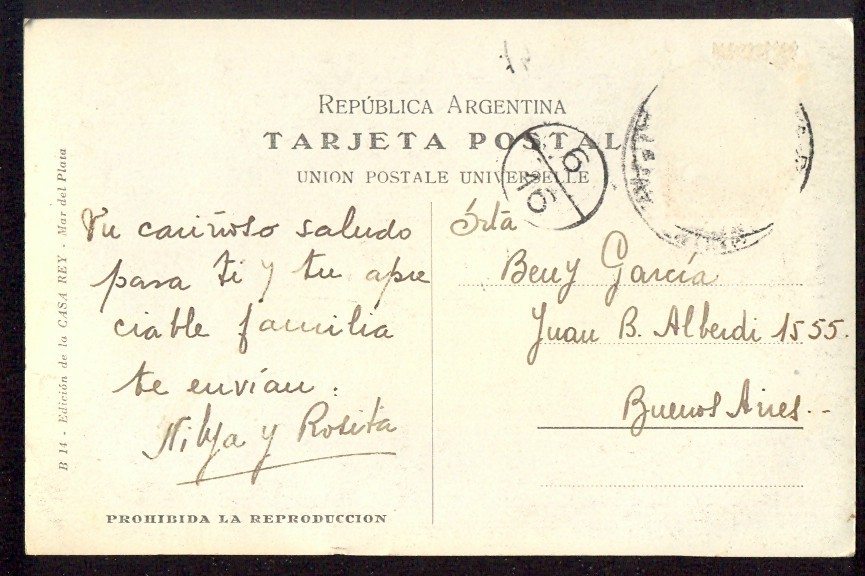 REPÚBLICA ARGENTINA
TARJETA POSTAL
UNION POSTALE UNIVERSELLE
B 14 - Edición de la CASA REY - Mar del Plata
Un cariñoso saludo
para ti y tu apre
ciable familia
te envían:
y Rosita
PROHIBIDA LA REPRODUCCION
Srta
Beny García
Juan B. Alberdi 1555.
Buenos Aires.-
6
16